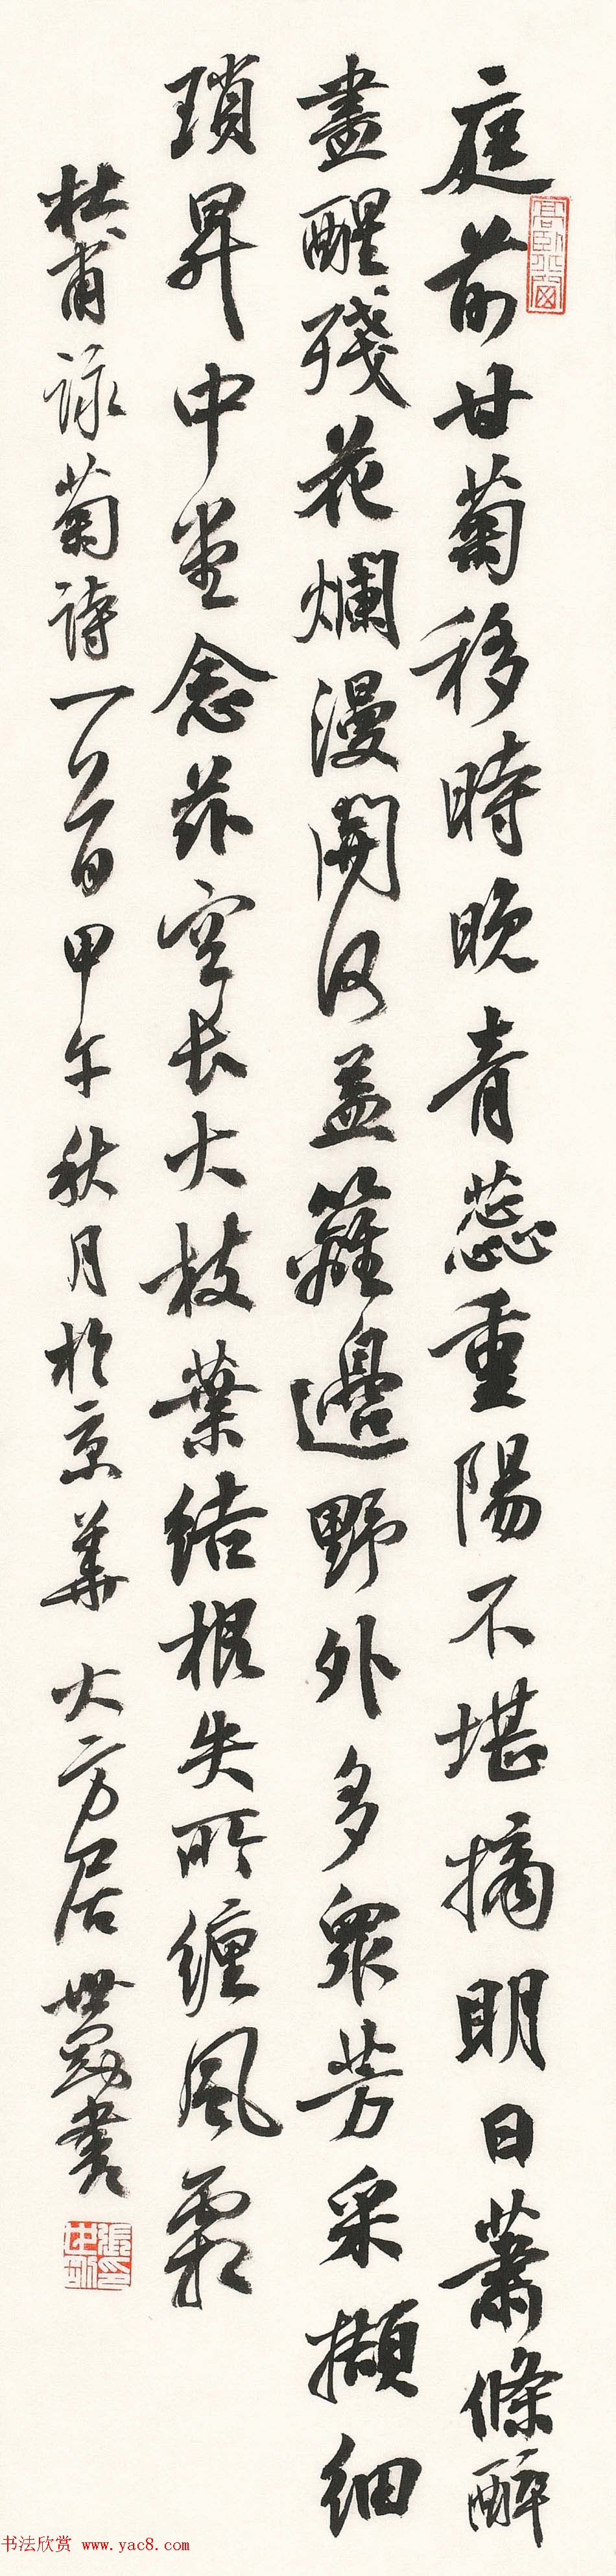 庭前甘菊移時晚青蕊重陽不堪摘明日蕭條醉
盡醒殘花爛漫開何益籬邊野外多眾芳采擷細
瑣昇中堂念茲空長大枝葉結根失所纏風霜
杜甫詠菊詩一首甲午秋月於京華 大方居 世勲書
书法欣赏 www.yac8.com